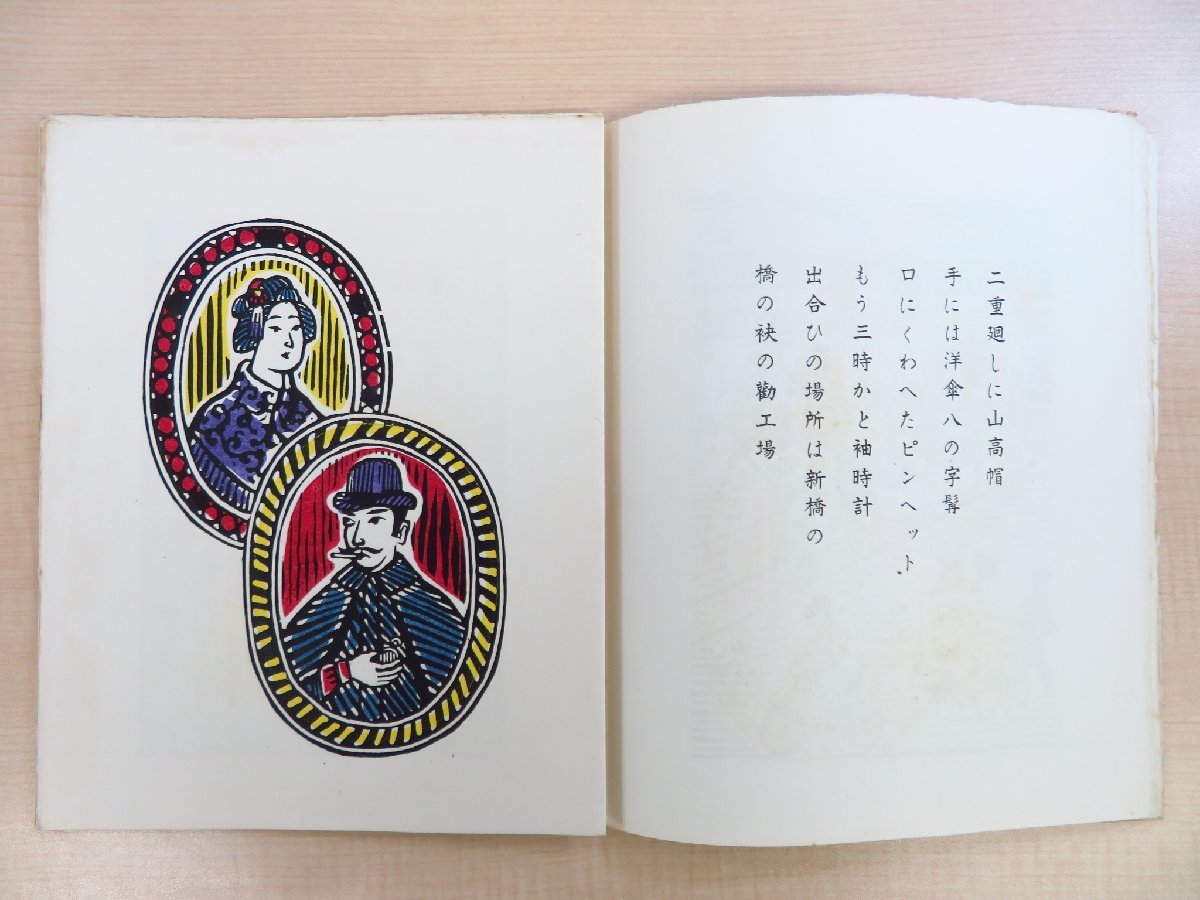 二重廻しに山高帽
手には洋傘八の字髯
口にくわへたピンヘット
もう三時かと袖時計
出合ひの場所は新橋の
橋の袂の勸工場